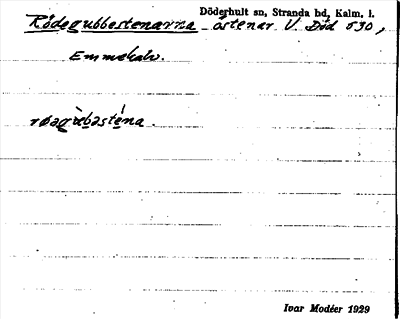 Döderhult sn, Stranda hd, Kalm. l.
Rödegubbestenarna östenar V. Död 630,
Emmekalv.
røəgùbəsténa.
Ivar Modéer 1929